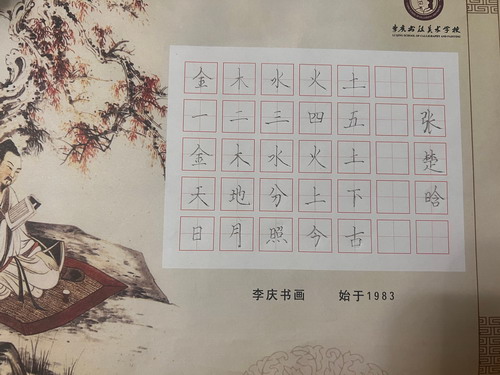 李庆书法美术学校
金木水火土
一二三四五张
金木水火土楚
天地分上下晗
日月照今古
李庆书画 始于1983